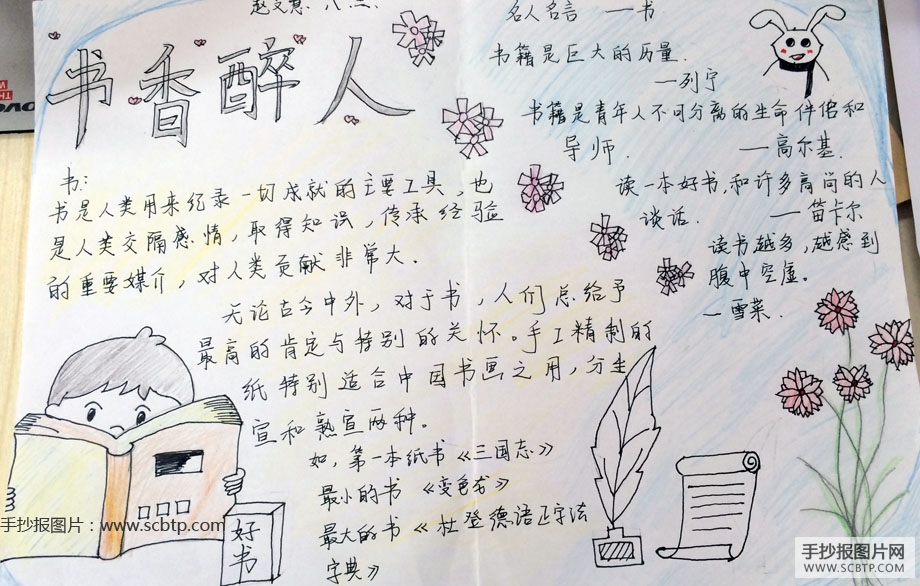 赵文慧 八.三.
书香醉人
书:
书是人类用来纪录一切成就的主要工具,也
是人类交隔感情,取得知识,传承经验
的重要媒介,对人类贡献非常大.
无论古今中外,对于书,人们总给予
最高的肯定与特别的关怀。手工精制的
纸特别适合中国书画之用,分生
宣和熟宣两种。
如,第一本纸书《三国志》
最小的书《变色龙》
最大的书《杜登德语正字法
字典》
好
书
名人名言 —书
书籍是巨大的历量.
—列宁
书籍是青年人不可分离的生命伴侣和
导师.
—高尔基.
读一本好书,和许多高尚的人
谈话.
—笛卡尔
读书越多,越感到
腹中空虚。
—雪莱.
手抄报图片:www.scbtp.com
手抄报图片网
WWW.SCBTP.COM